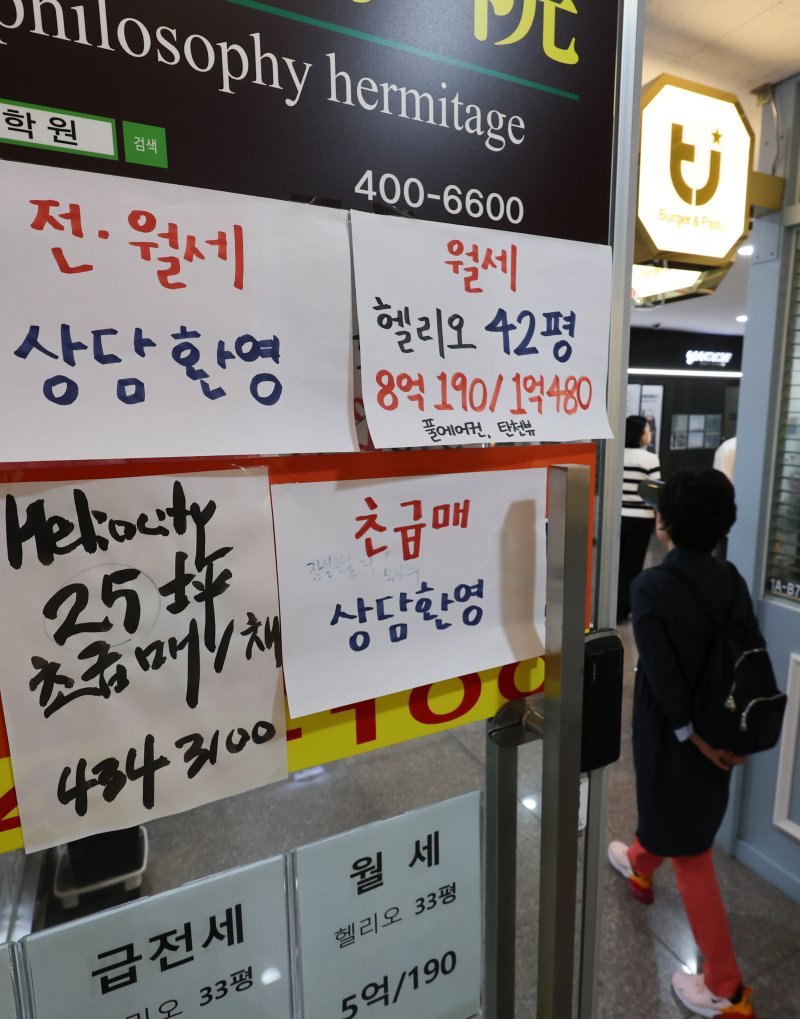 philosophy hermitage
학원
검색
400-6600
전·월세
상담환영
월세
헬리오 42평
8억 190/1억480
풀에어컨, 탄천뷰
Burger & Pasta
Heliocity
25坪
초급매/채
434 3100
초급매
상담환영
급전세
리오 33평
월 세
헬리오 33평
5억/190